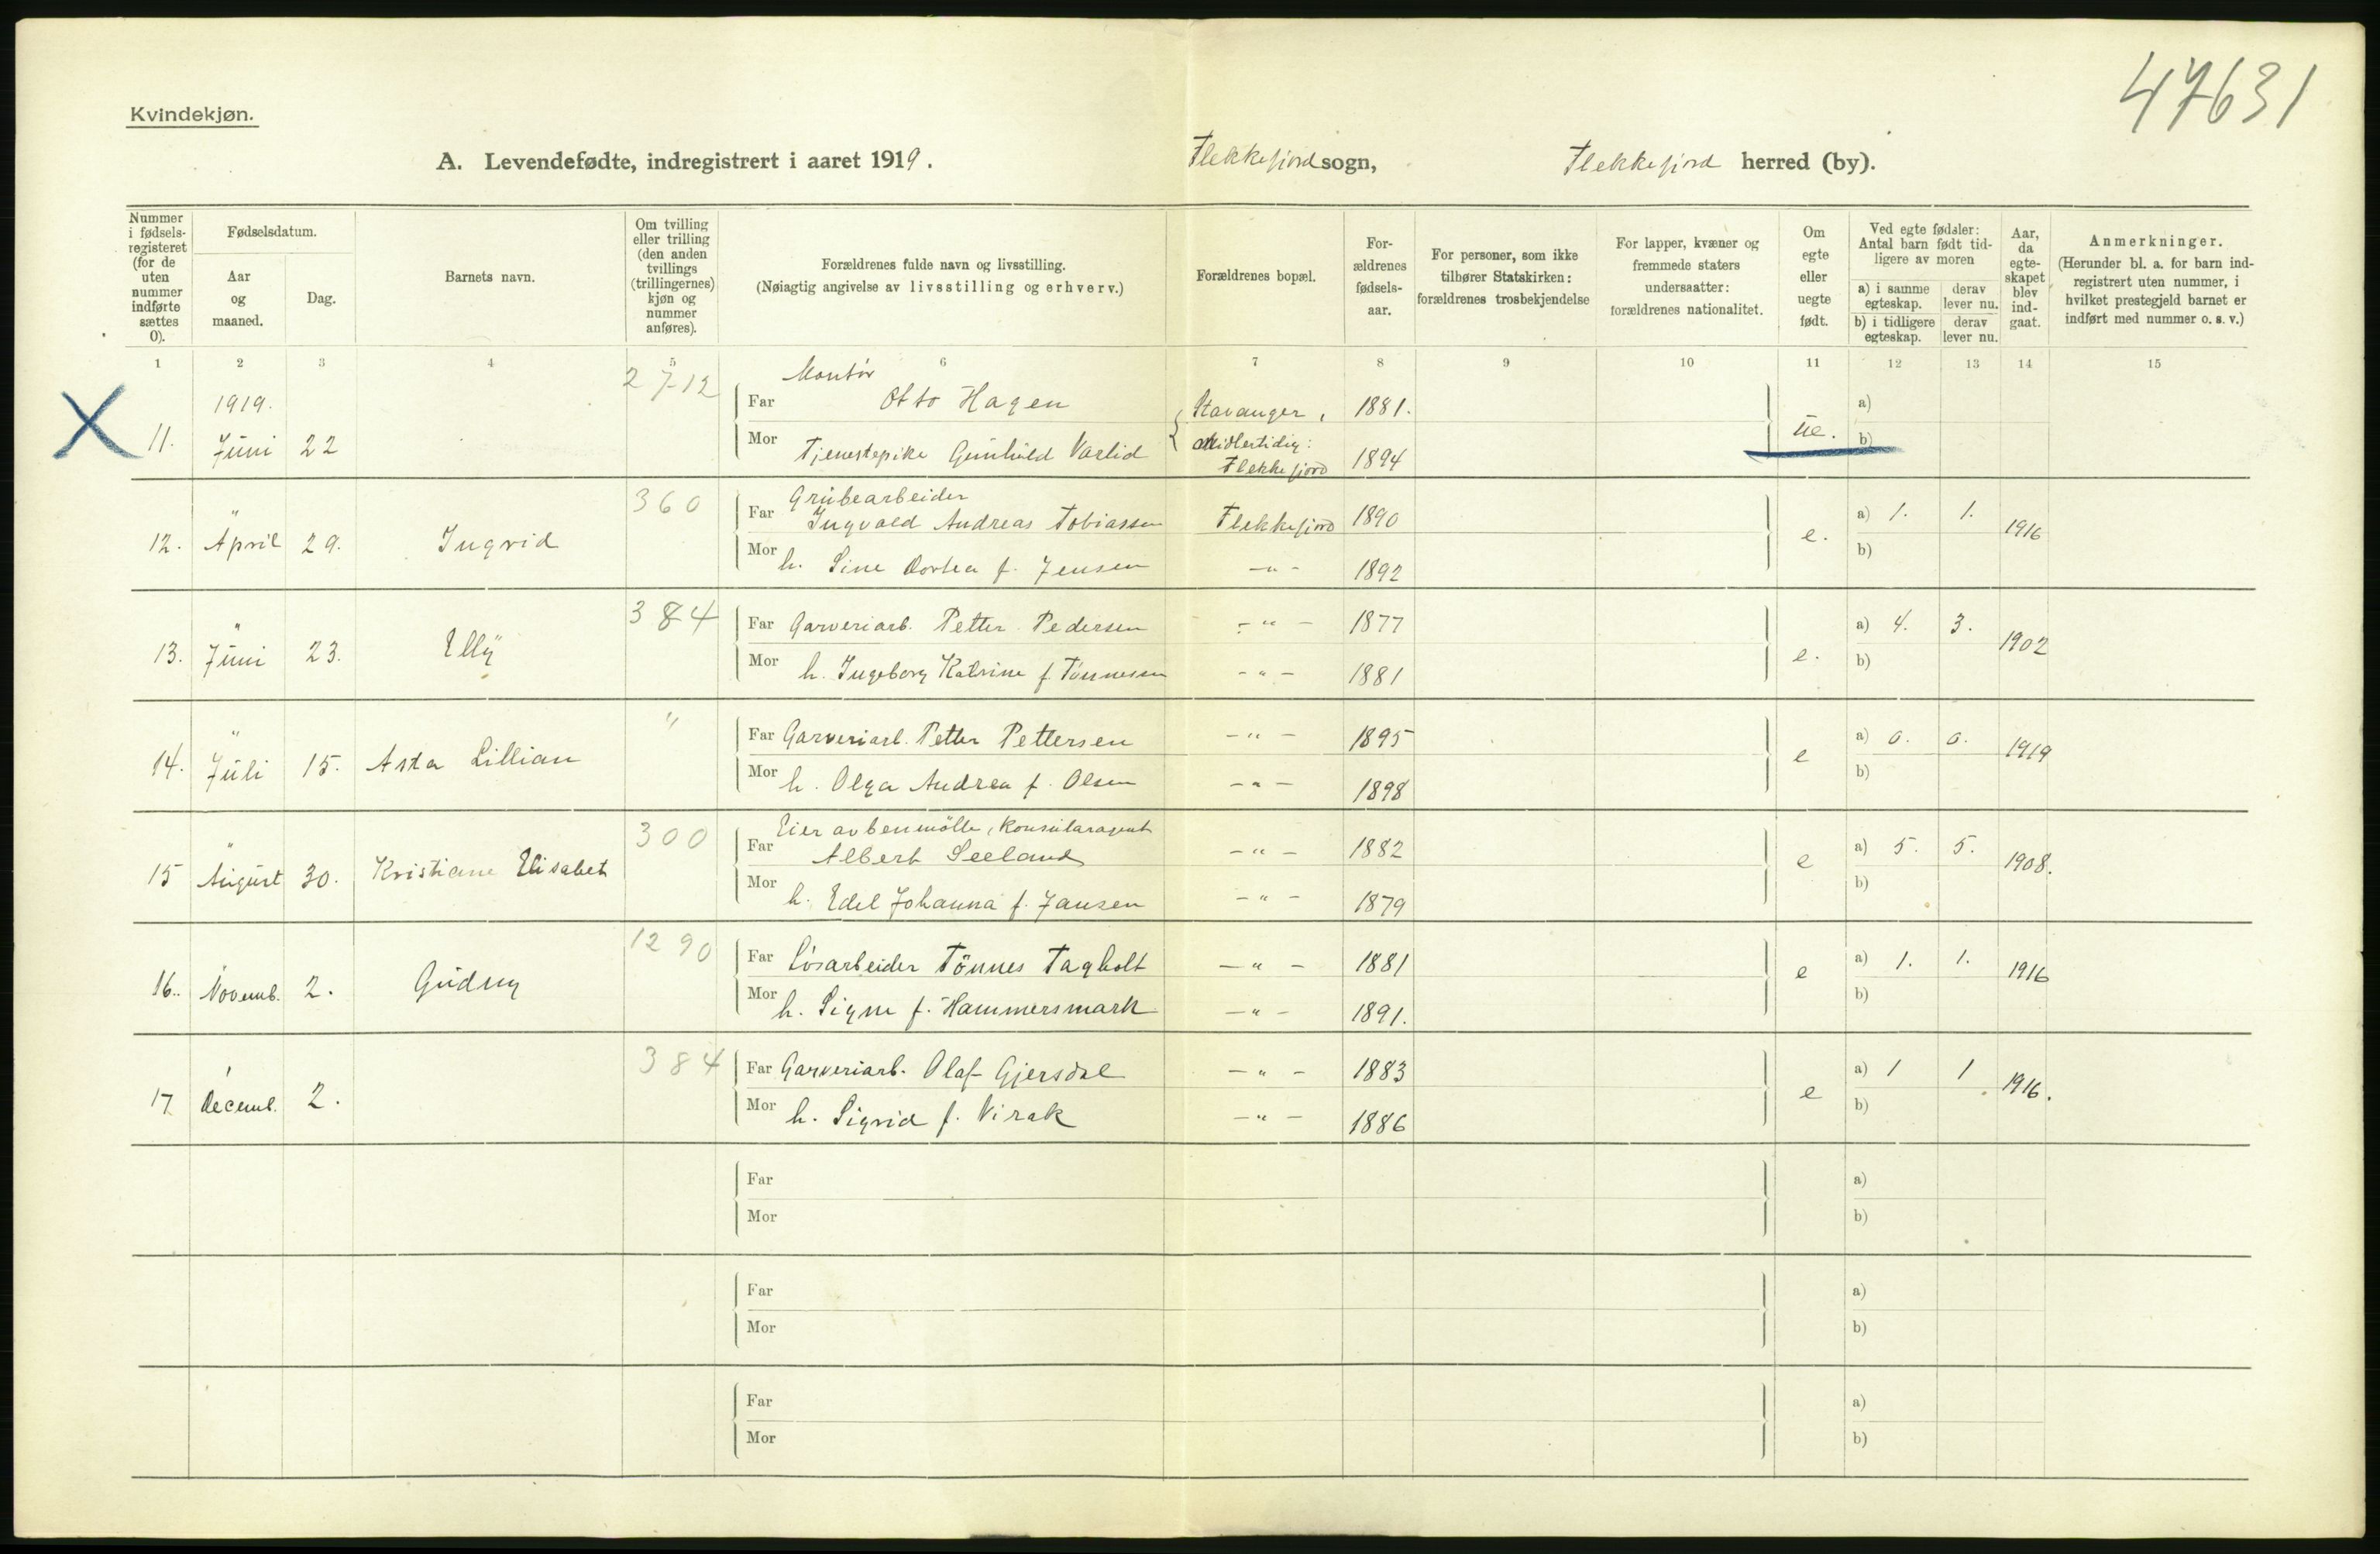 47631
Kvindekjøn.
A. Levendefødte, indregistrert i aaret 1919. Flekkefjord sogn, Flekkefjord herred (by).
Nummer i fødsels-registeret (for de uten nummer indførte sættes 0).
Fødselsdatum.
Aar og maaned.
Dag.
Barnets navn.
Om tvilling eller trilling (den anden tvillings (trillingernes) kjøn og nummer anføres).
Forældrenes fulde navn og livsstilling.
(Nøiagtig angivelse av livsstilling og erhverv.)
Forældrenes bopæl.
For-ældrenes fødsels-aar.
For personer, som ikke tilhører Statskirken: forældrenes trosbekjendelse
For lapper, kvæner og fremmede staters undersaatter: forældrenes nationalitet.
Om egte eller uegte født.
Ved egte fødsler: Antal barn født tid-ligere av moren
a) i samme egteskap. derav lever nu.
b) i tidligere egteskap. derav lever nu.
Aar, da egte-skapet blev ind-gaat.
Anmerkninger.
(Herunder bl. a. for barn ind-registrert uten nummer, i hvilket prestegjeld barnet er indført med nummer o. s. v.)
1 2 3 4 5 6 7 8 9 10 11 12 13 14 15
X 2712 Montør
1919. Far Otto Hagen Stavanger, 1881. a)
11. Juni 22 Mor Tjenestepike Gunhild Varlid Midlertidig: Flekkefjord 1894 ue. b)
360 Grubearbeider
" Far Ingvald Andreas Tobiassen Flekkefjord 1890 a) 1. 1.
12. April 29. Ingrid Mor h. Sine Dorthea f. Jensen -"- 1892 e. b) 1916
" 384 Far Garveriarb. Petter Pedersen -"- 1877 a) 4. 3.
13. Juni 23. Elly Mor h. Ingeborg Katrine f. Tønnesen -"- 1881 e. b) 1902
" " Far Garveriarb. Petter Pettersen -"- 1895 a) 0. 0.
14. Juli 15. Asta Lillian Mor h. Olga Andrea f. Olsen -"- 1898 e b) 1919
300 Eier av benmølle, Konsularagent
" Far Albert Seeland -"- 1882 a) 5. 5.
15 August 30. Kristiane Elisabet Mor h. Edel Johanna f. Jansen -"- 1879 e b) 1908.
1290 Far Løsarbeider Tönnes Tagholt -"- 1881 a) 1. 1.
16. Novemb. 2. Gudny Mor h. Signe f. Hammersmark -"- 1891. e b) 1916
384 Far Garveriarb. Olaf Gjersdal -"- 1883 a) 1 1
17 Decemb. 2. Mor h. Sigrid f. Virak -"- 1886 e b) 1916.
Far a)
Mor b)
Far a)
Mor b)
Far a)
Mor b)